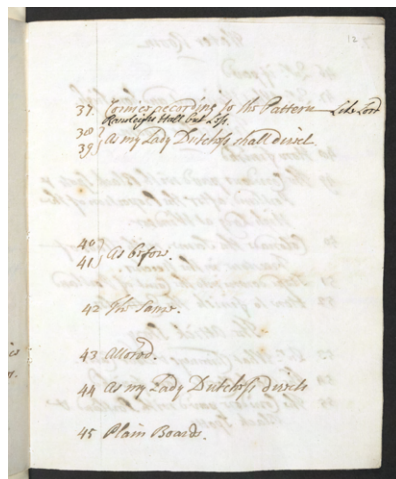 12
37. Cornice according to the Pattern Like Lord
Rawleighs Hall but Less.
38
39 } As my Lady Dutchess shall direct.
40
41 } As before.
42 The Same.
43 Allowed.
44 As my Lady Dutchess directs
45 Plain Boards.